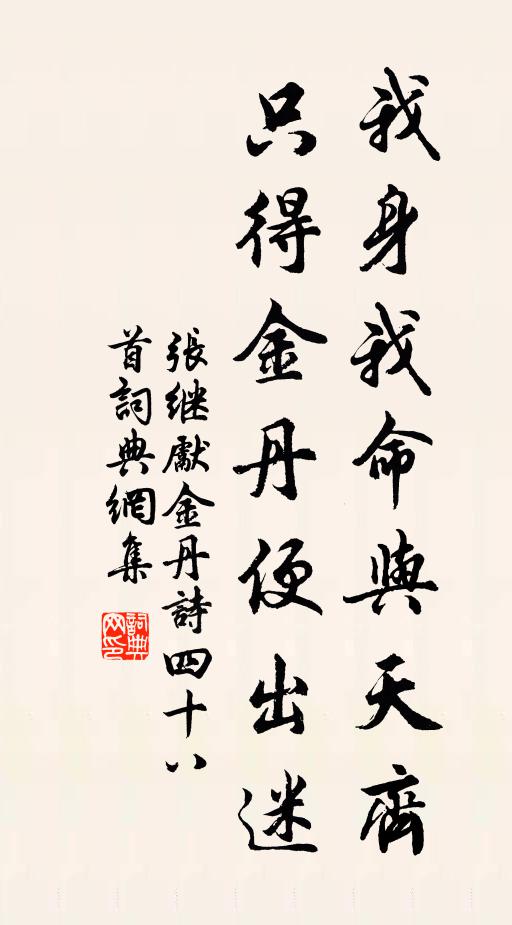 我身我命與天齊
只得金丹便出迷
張继獻金丹詩四十八
首詞典網集
詞典
网印